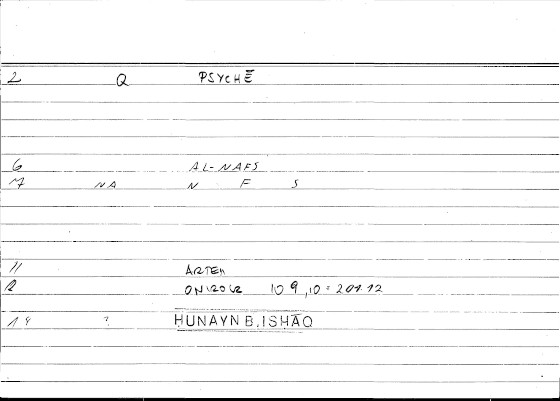 2 Q PSYCHĒ
6 AL-NAFS
7 NA N F S
11 ARTEM
12 ONIROCR 10 9,10 = 201.12
14 ? HUNAYN B. ISHAQ